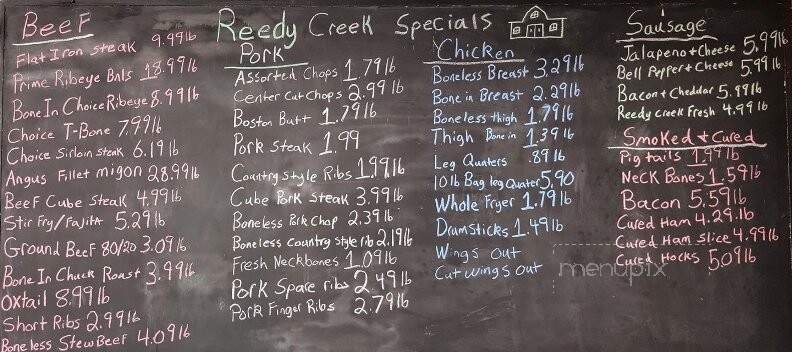 Reedy Creek Specials
Beef
Flat Iron steak 9.99lb
Prime Ribeye Bnls 18.99lb
Bone In Choice Ribeye 8.99lb
Choice T-Bone 7.99lb
Choice Sirloin steak 6.19lb
Angus Fillet migon 28.99lb
Beef Cube steak 4.99lb
Stir Fry/Fajita 5.29lb
Ground Beef 80/20 3.09lb
Bone In Chuck Roast 3.99lb
Oxtail 8.99lb
Short Ribs 2.99lb
Boneless Stew Beef 4.09lb
Pork
Assorted Chops 1.79lb
Center Cut Chops 2.99lb
Boston Butt 1.79lb
Pork Steak 1.99
Country style Ribs 1.99lb
Cube Pork Steak 3.99lb
Boneless Pork Chop 2.39lb
Boneless Country style rib 2.19lb
Fresh Neckbones 1.09lb
Pork Spare ribs 2.49lb
Pork Finger Ribs 2.79lb
Chicken
Boneless Breast 3.29lb
Bone in Breast 2.29lb
Boneless thigh 1.79lb
Thigh Bone in 1.39lb
Leg Quaters .89lb
10lb Bag leg Quater 5.90
Whole Fryer 1.79lb
Drumsticks 1.49lb
Wings Out
Cut wings out
Sausage
Jalapeno + Cheese 5.99lb
Bell Pepper + Cheese 5.99lb
Bacon + Cheddar 5.99lb
Reedy Creek Fresh 4.99lb
Smoked + Cured
Pig tails 1.99lb
Neck Bones 1.59lb
Bacon 5.59lb
Cured Ham 4.29lb
Cured Ham Slice 4.99lb
Cured Hocks 5.09lb
menupix